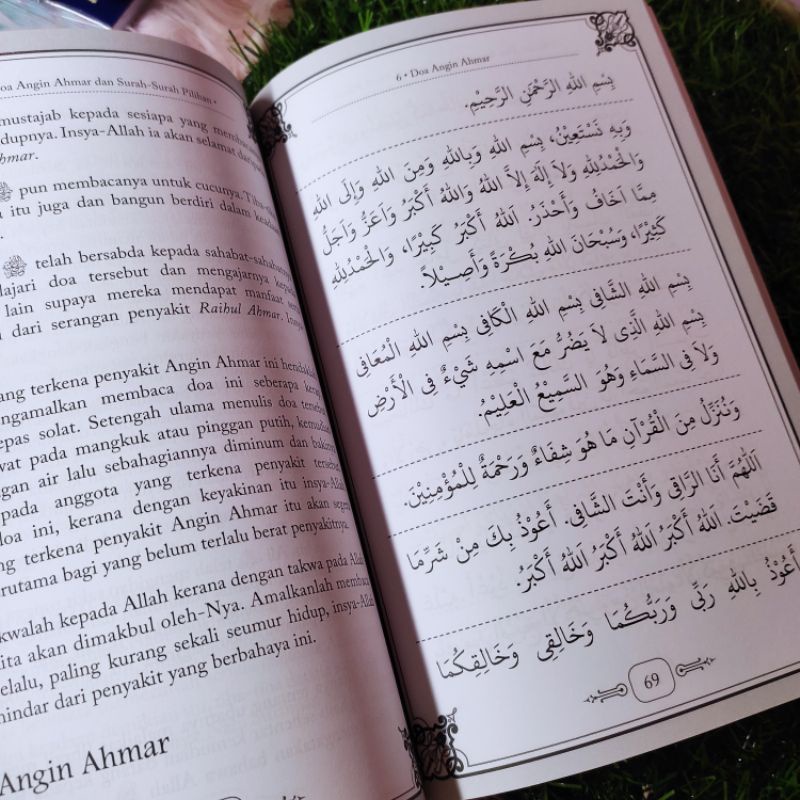 Doa Angin Ahmar dan Surah-Surah Pilihan •
mustajab kepada sesiapa yang membaca
hidupnya. Insya-Allah ia akan selamat
Ahmar.
ﷺ pun membacanya untuk cucunya.
itu juga dan bangun berdiri dalam
ﷺ telah bersabda kepada
doa tersebut dan mengajarnya
lain supaya mereka mendapat manfaat
dari serangan penyakit Raihul Ahmar.
yang terkena penyakit Angin Ahmar ini
mengamalkan membaca doa ini seberapa
lepas solat. Setengah ulama menulis doa
pada mangkuk atau pinggan putih,
dengan air lalu sebahagiannya diminum dan
kepada anggota yang terkena penyakit
doa ini, kerana dengan keyakinan itu
yang terkena penyakit Angin Ahmar itu akan
terutama bagi yang belum terlalu berat penyakitnya.
kepada Allah kerana dengan takwa pada
kita akan dimakbul oleh-Nya. Amalkanlah membaca
selalu, paling kurang sekali seumur hidup, insya-Allah
dari penyakit yang berbahaya ini.
Angin Ahmar
6 • Doa Angin Ahmar
بِسْمِ اللهِ الرَّحْمَنِ الرَّحِيْمِ.
وَبِهِ نَسْتَعِيْنُ، بِسْمِ اللهِ وَبِاللهِ وَمِنَ اللهِ وَإِلَى اللهِ
وَالْحَمْدُلِلّٰهِ وَلَا إِلَهَ إِلَّا اللهُ وَاللهُ أَكْبَرُ وَأَعَزُّ وَأَجَلُّ
مِمَّا أَخَافُ وَأَحْذَرُ. اَللهُ أَكْبَرُ كَبِيْرًا، وَالْحَمْدُلِلّٰهِ
كَثِيْرًا، وَسُبْحَانَ اللهِ بُكْرَةً وَأَصِيْلاً.
بِسْمِ اللهِ الشَّافِى بِسْمِ اللهِ الْكَافِى بِسْمِ اللهِ الْمُعَافِى
بِسْمِ اللهِ الَّذِى لَا يَضُرُّ مَعَ اسْمِهِ شَيْءٌ فِى الْأَرْضِ
وَلَا فِى السَّمَاءِ وَهُوَ السَّمِيْعُ الْعَلِيْمُ.
وَنُنَزِّلُ مِنَ الْقُرْآنِ مَا هُوَ شِفَاءٌ وَرَحْمَةٌ لِلْمُؤْمِنِيْنَ.
اَللّٰهُمَّ أَنَا الرَّاقِى وَأَنْتَ الشَّافِى. أَعُوْذُ بِكَ مِنْ شَرِّمَا
قَضَيْتَ. اَللهُ أَكْبَرُ اَللهُ أَكْبَرُ اَللهُ أَكْبَرُ.
أَعُوْذُ بِاللهِ رَبِّى وَرَبُّكُمَا وَخَالِقِى وَخَالِقِكُمَا
69